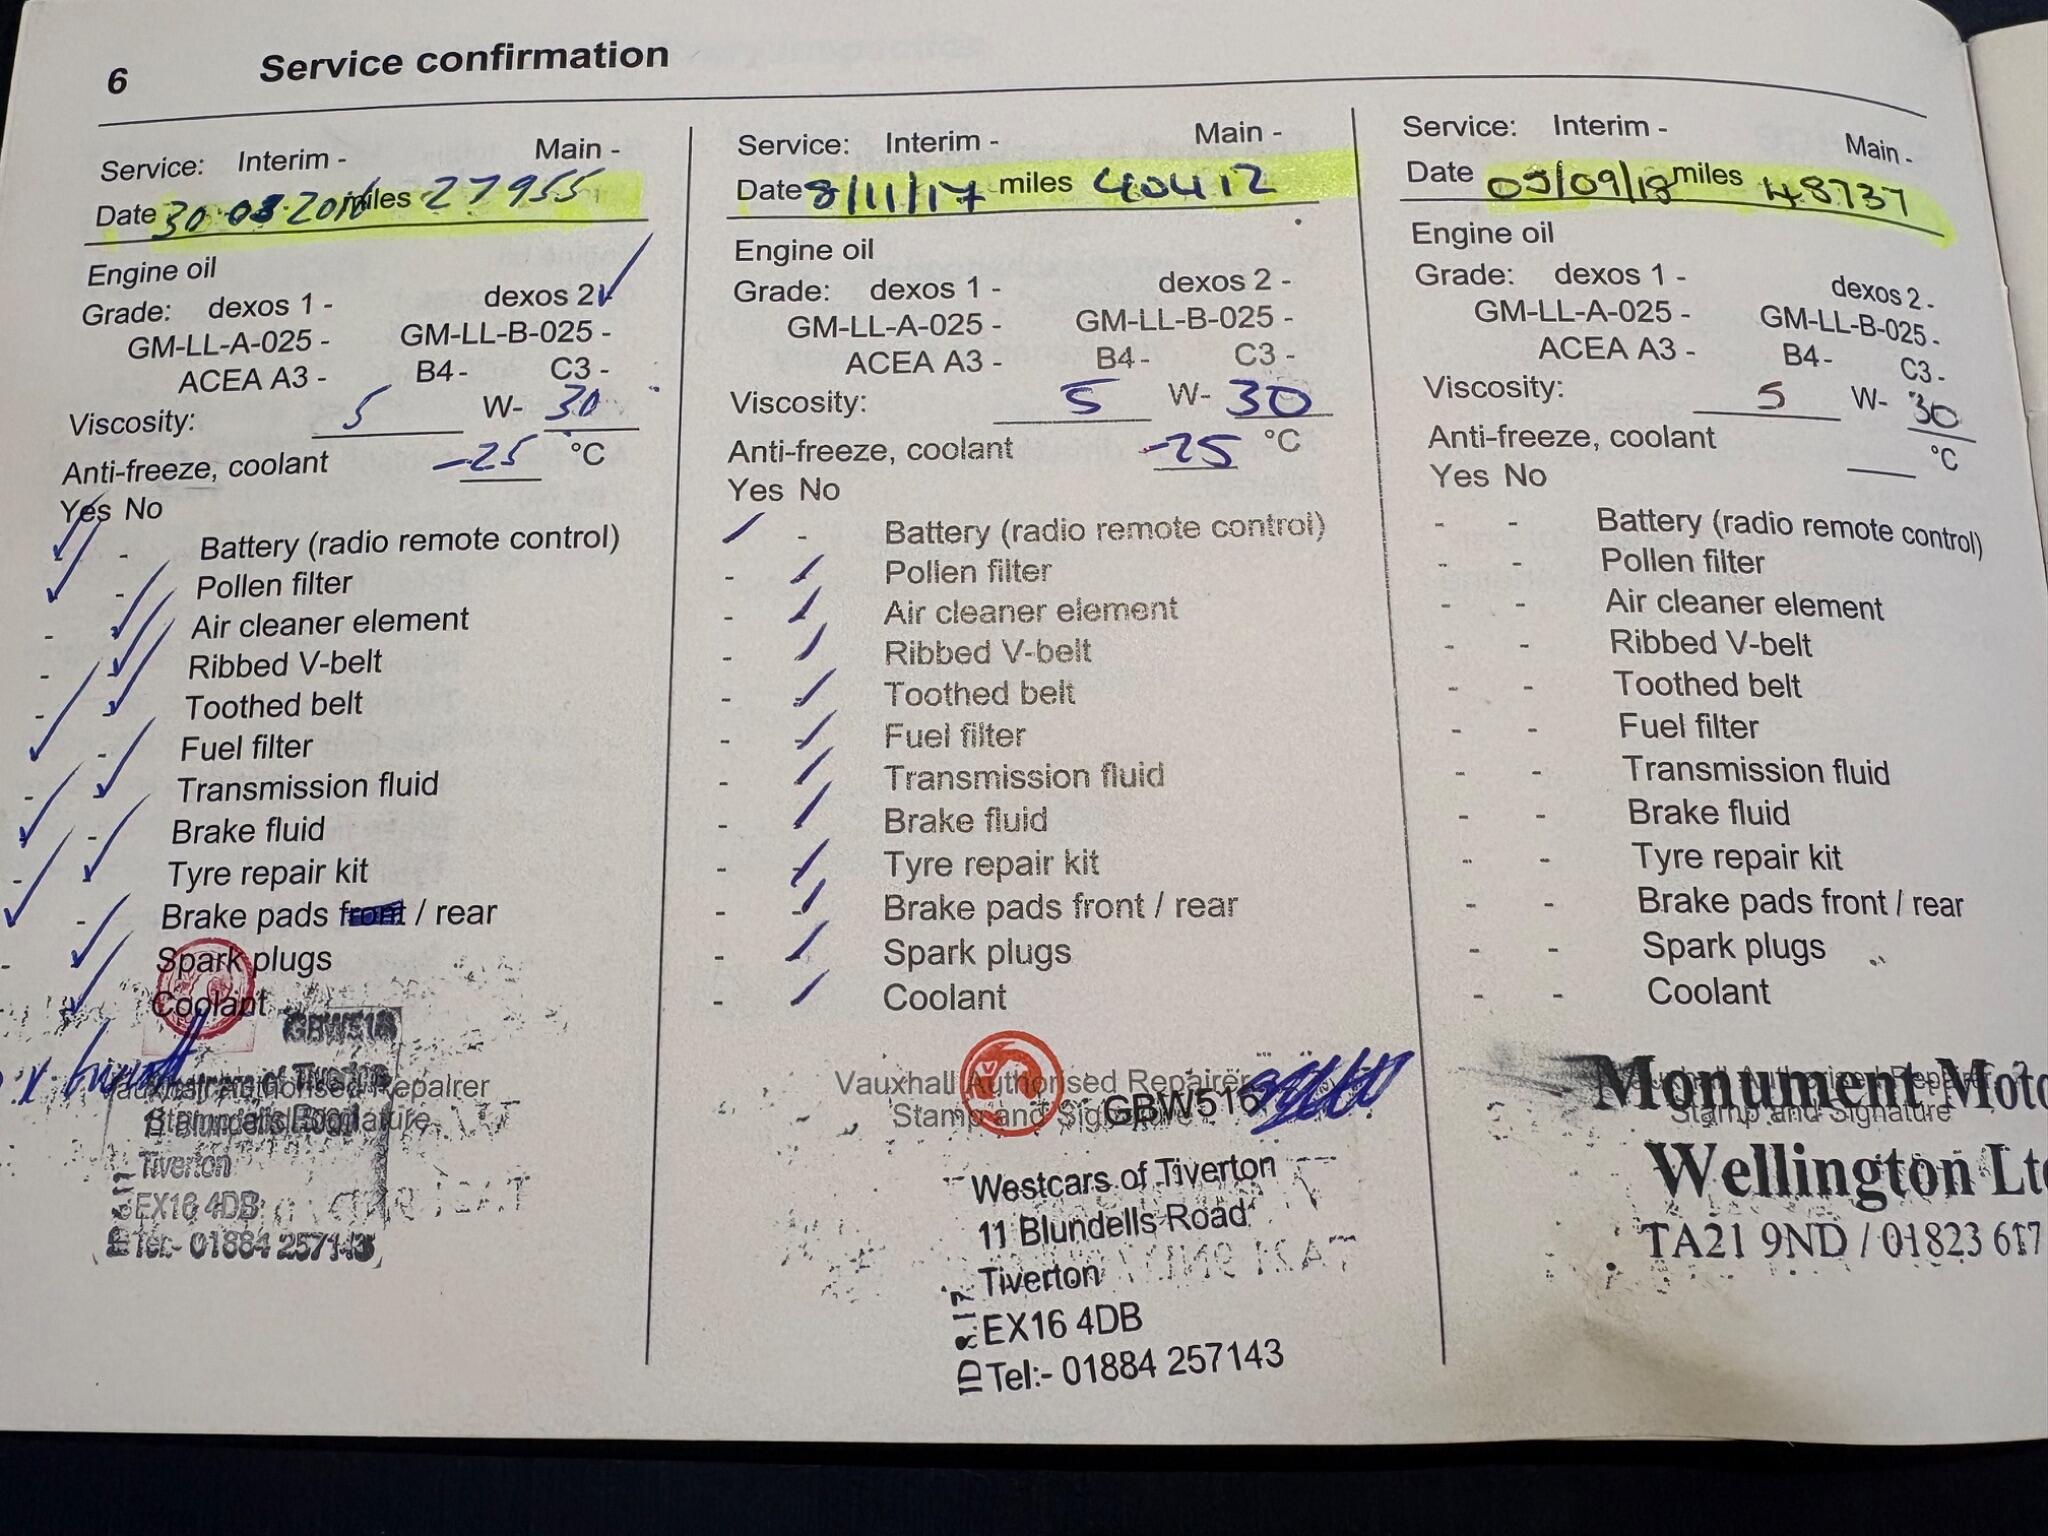 6 Service confirmation
Service: Interim - Main -
Date 30 miles 27955
Engine oil
Grade: dexos 1 - dexos 2 -
GM-LL-A-025 - GM-LL-B-025 -
ACEA A3 - B4- C3 -
Viscosity: 5 W- 30
Anti-freeze, coolant -25 °C
Yes No
- Battery (radio remote control)
- Pollen filter
- Air cleaner element
- Ribbed V-belt
- Toothed belt
- Fuel filter
- Transmission fluid
- Brake fluid
- Tyre repair kit
- Brake pads front / rear
- Spark plugs
Coolant
GBW516
Vauxhall Authorised Repairer
Stamp and Signature
Tiverton
EX16 4DB
Tel:- 01884 257143
Service: Interim - Main -
Date 8/11/17 miles 40412
Engine oil
Grade: dexos 1 - dexos 2 -
GM-LL-A-025 - GM-LL-B-025 -
ACEA A3 - B4- C3 -
Viscosity: 5 W- 30
Anti-freeze, coolant -25 °C
Yes No
- Battery (radio remote control)
- Pollen filter
- Air cleaner element
- Ribbed V-belt
- Toothed belt
- Fuel filter
- Transmission fluid
- Brake fluid
- Tyre repair kit
- Brake pads front / rear
- Spark plugs
- Coolant
Vauxhall Authorised Repairer
Stamp and Signature
GBW516
Westcars of Tiverton
11 Blundells Road
Tiverton
EX16 4DB
Tel:- 01884 257143
Service: Interim - Main -
Date 09/18 miles 48737
Engine oil
Grade: dexos 1 - dexos 2 -
GM-LL-A-025 - GM-LL-B-025 -
ACEA A3 - B4- C3 -
Viscosity: 5 W- 30
Anti-freeze, coolant °C
Yes No
- - Battery (radio remote control)
- - Pollen filter
- - Air cleaner element
- - Ribbed V-belt
- - Toothed belt
- - Fuel filter
- - Transmission fluid
- - Brake fluid
- - Tyre repair kit
- - Brake pads front / rear
- - Spark plugs
- - Coolant
Vauxhall Authorised Repairer
Stamp and Signature
Monument Moto
Wellington Lt
TA21 9ND / 01823 617